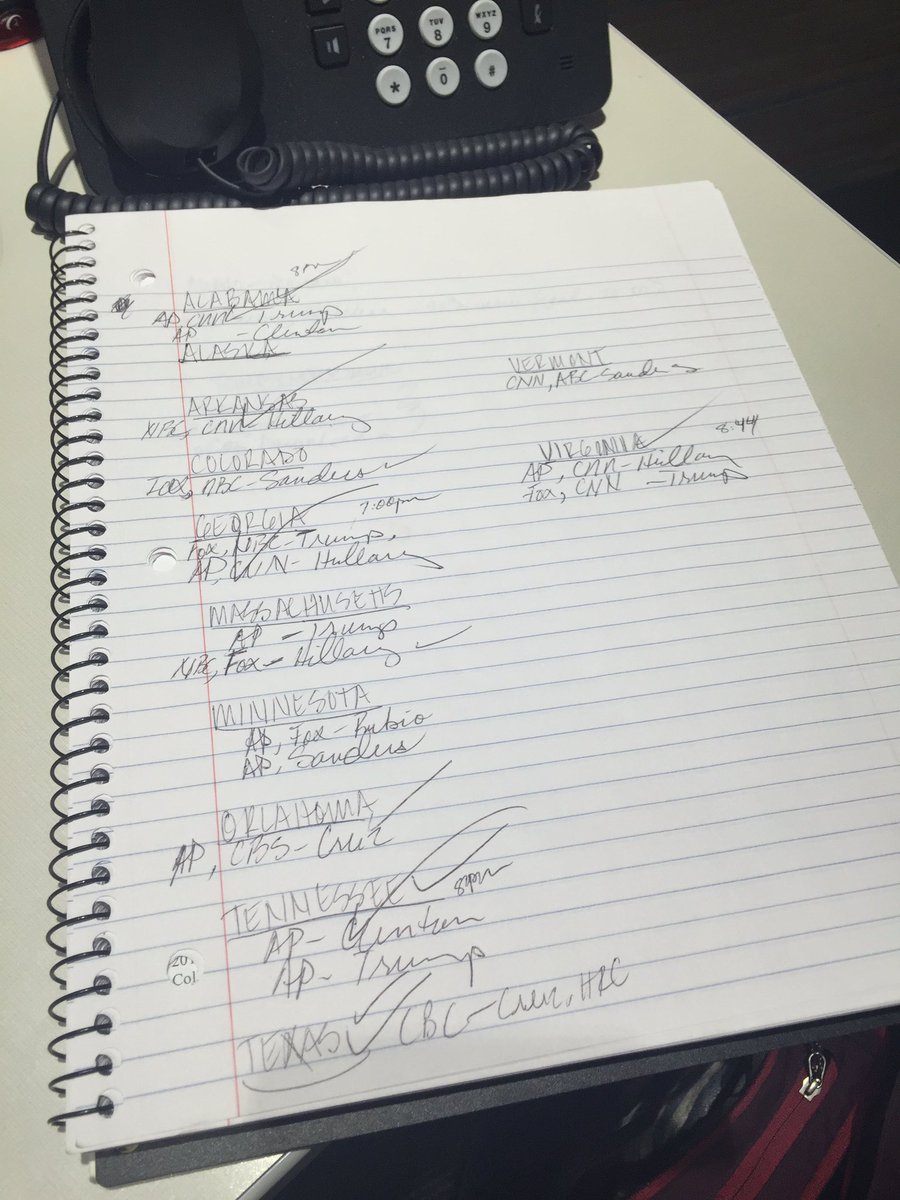 PQRS
7
TUV
8
WXYZ
9
*
0
#
8pm
ALABAMA
AP, CNN - Trump
AP - Clinton
ALASKA
ARKANSAS
NBC, CNN - Hillary
COLORADO
NBC - Sanders
7:00pm
GEORGIA
Fox, NBC - Trump,
AP, CNN - Hillary
MASSACHUSETTS
AP - Trump
NBC, Fox - Hillary
MINNESOTA
AP, Fox - Rubio
AP, Sanders
OKLAHOMA
AP, CBS - Cruz
TENNESSEE
8pm
AP - Clinton
AP - Trump
TEXAS CBC - Cruz, HRC
VERMONT
CNN, ABC - Sanders
8:44
VIRGINIA
AP, CNN - Hillary
Fox, CNN - Trump
201
Col